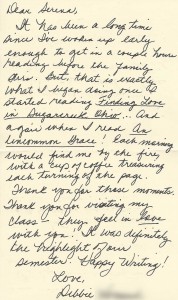 Dear Serena,
It has been a long time
since I've woken up early
enough to get in a couple hours
reading before the family
stirs. But, that is exactly
what I began doing once I
started reading Finding Love
in Sugarcreek Ohio... And
again when I read An
Uncommon Grace! Each morning
would find me by the fire,
with a cup of coffee treasuring
each turning of the page.
Thank you for those moments.
Thank you for visiting my
class - they fell in love
with you! It was definitely
the highlight of our
semester. Happy Writing!
Love,
Debbie